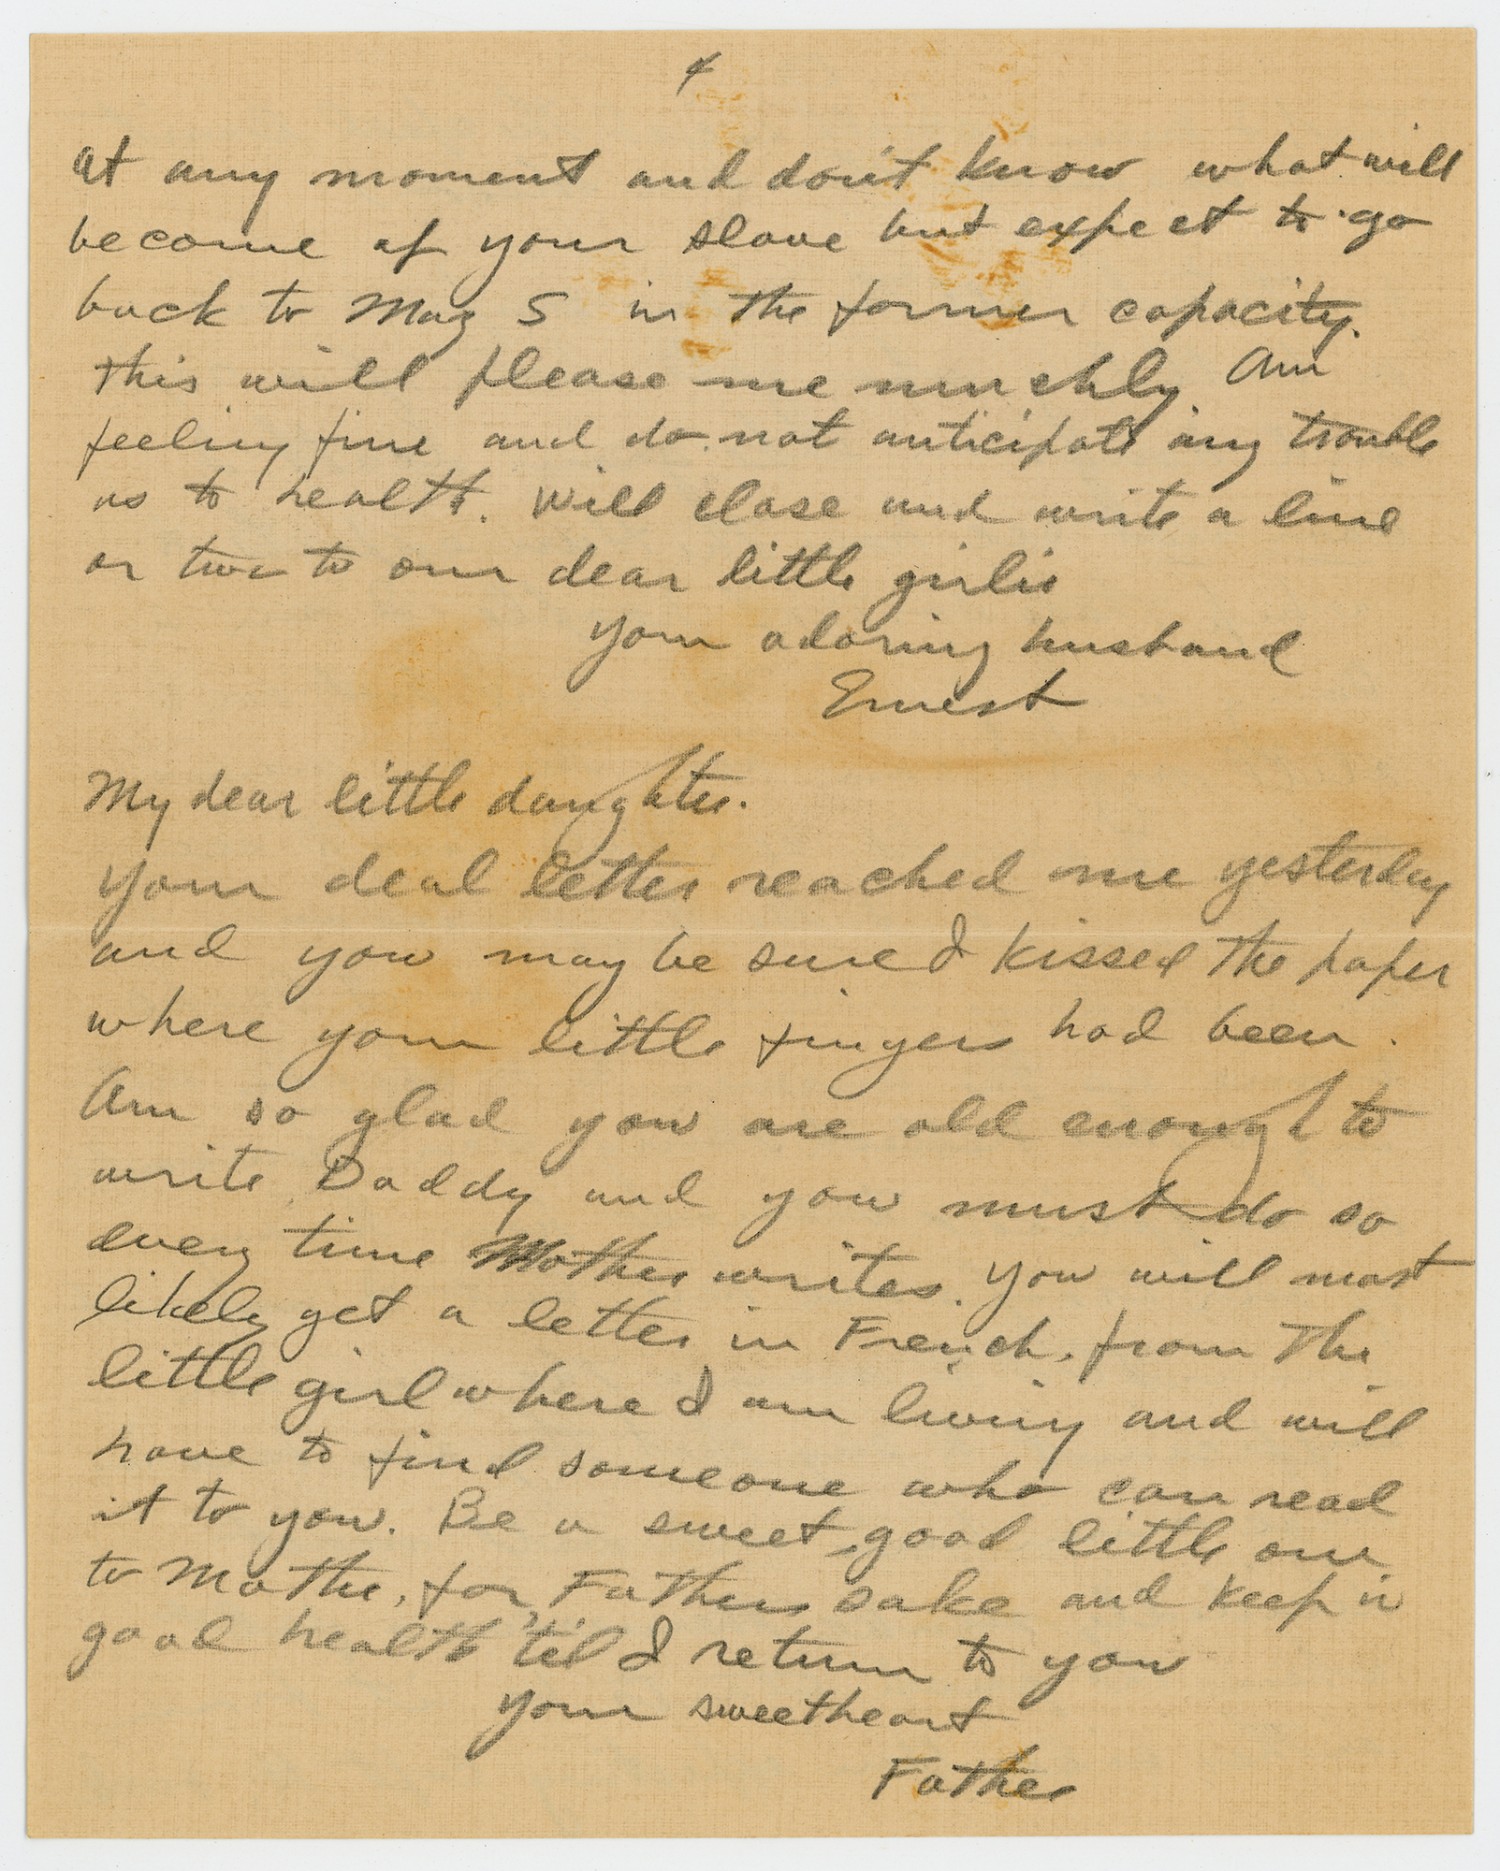 4
at any moment and don't know what will
become of your slave but expect to go
back to Mag S in the former capacity.
This will please me muchly. Am
feeling fine and do not anticipate any trouble
as to health. Will close and write a line
or two to our dear little girlie
Your adoring husband
Ernest
My dear little daughter.
Your deal letter reached me yesterday
and you may be sure I kissed the paper
where your little fingers had been.
Am so glad you are old enough to
write Daddy and you must do so
every time Mother writes. You will most
likely get a letter in French, from the
little girl where I am living and will
have to find someone who can read
it to you. Be a sweet, good little one
to Mother, for Fathers sake and keep in
good health 'til I return to you
Your sweetheart
Father